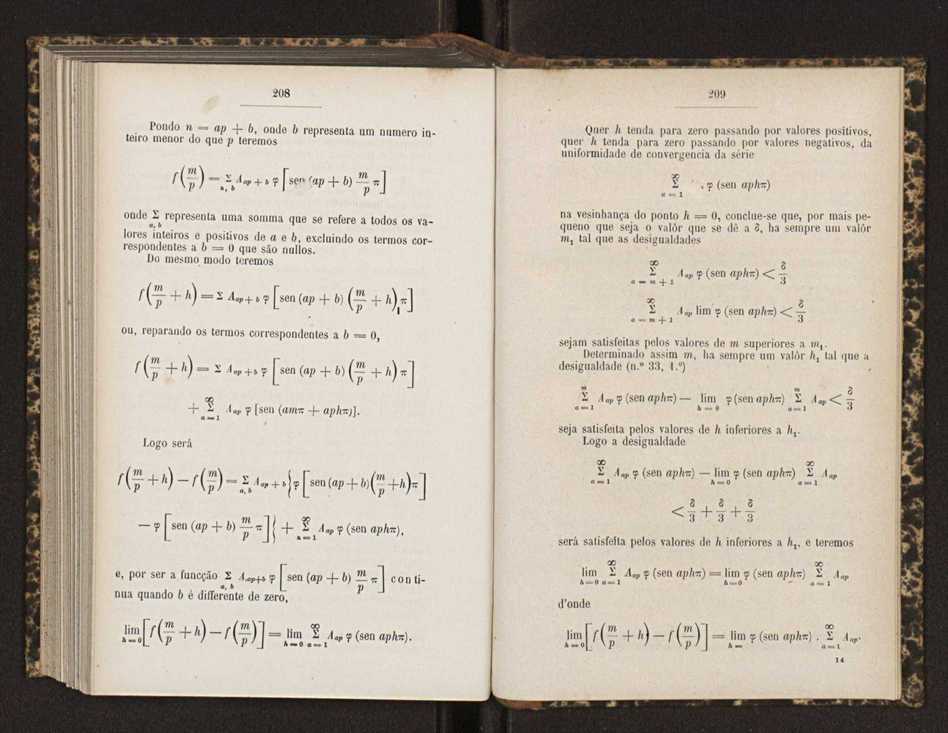 208
Pondo n = ap + b, onde b representa um numero in-
teiro menor do que p teremos
f(m/p) = Σ_{a, b} A_{ap + b} φ [sen (ap + b) m/p π]
onde Σ_{a, b} representa uma somma que se refere a todos os va-
lores inteiros e positivos de a e b, excluindo os termos cor-
respondentes a b = 0 que são nullos.
Do mesmo modo teremos
f(m/p + h) = Σ A_{ap + b} φ [sen (ap + b) (m/p + h) π]
ou, reparando os termos correspondentes a b = 0,
f(m/p + h) = Σ A_{ap + b} φ [sen (ap + b) (m/p + h) π]
+ Σ_{a = 1}^{∞} A_{ap} φ [sen (amπ + aphπ)].
Logo será
f(m/p + h) — f(m/p) = Σ_{a, b} A_{ap + b} {φ [sen (ap + b) (m/p + h) π]
— φ [sen (ap + b) m/p π]} + Σ_{a = 1}^{∞} A_{ap} φ (sen aphπ),
e, por ser a funcção Σ_{a, b} A_{ap+b} φ [sen (ap + b) m/p π] conti-
nua quando b é differente de zero,
lim_{h = 0} [f(m/p + h) — f(m/p)] = lim_{h = 0} Σ_{a = 1}^{∞} A_{ap} φ (sen aphπ).
209
Quer h tenda para zero passando por valores positivos,
quer h tenda para zero passando por valores negativos, da
uniformidade de convergencia da série
Σ_{a = 1}^{∞} φ (sen aphπ)
na vesinhança do ponto h = 0, conclue-se que, por mais pe-
queno que seja o valôr que se dê a δ, ha sempre um valôr
m₁ tal que as desigualdades
Σ_{a = m + 1}^{∞} A_{ap} φ (sen aphπ) < δ/3
Σ_{a = m + 1}^{∞} A_{ap} lim φ (sen aphπ) < δ/3
sejam satisfeitas pelos valores de m superiores a m₁.
Determinado assim m, ha sempre um valôr h₁ tal que a
desigualdade (n.º 33, 1.º)
Σ_{a = 1}^{m} A_{ap} φ (sen aphπ) — lim_{h = 0} φ (sen aphπ) Σ_{a = 1}^{m} A_{ap} < δ/3
seja satisfeita pelos valores de h inferiores a h₁.
Logo a desigualdade
Σ_{a = 1}^{∞} A_{ap} φ (sen aphπ) — lim_{h = 0} φ (sen aphπ) Σ_{a = 1}^{∞} A_{ap}
< δ/3 + δ/3 + δ/3
será satisfeita pelos valores de h inferiores a h₁, e teremos
lim_{h = 0} Σ_{a = 1}^{∞} A_{ap} φ (sen aphπ) = lim_{h = 0} φ (sen aphπ) Σ_{a = 1}^{∞} A_{ap}
d'onde
lim_{h = 0} [f(m/p + h) — f(m/p)] = lim_{h =} φ (sen aphπ) . Σ_{a = 1}^{∞} A_{ap}.
14